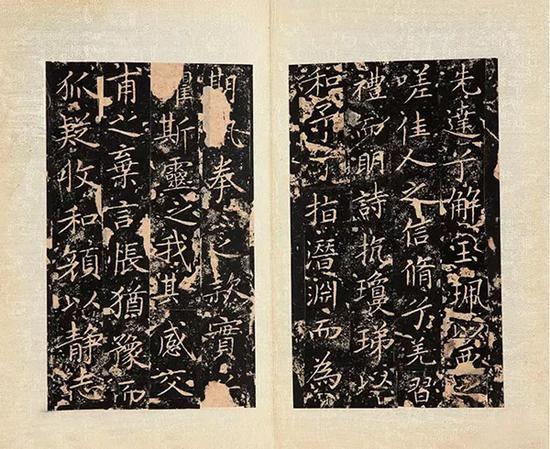 先達兮解玉珮以要之
嗟佳人之信脩兮羌習
禮而明詩抗瓊珶以
和予兮指潛淵而為
期拳之款實
懼斯靈之我其感交
甫之棄言悵猶豫而
狐疑收和顏以靜志